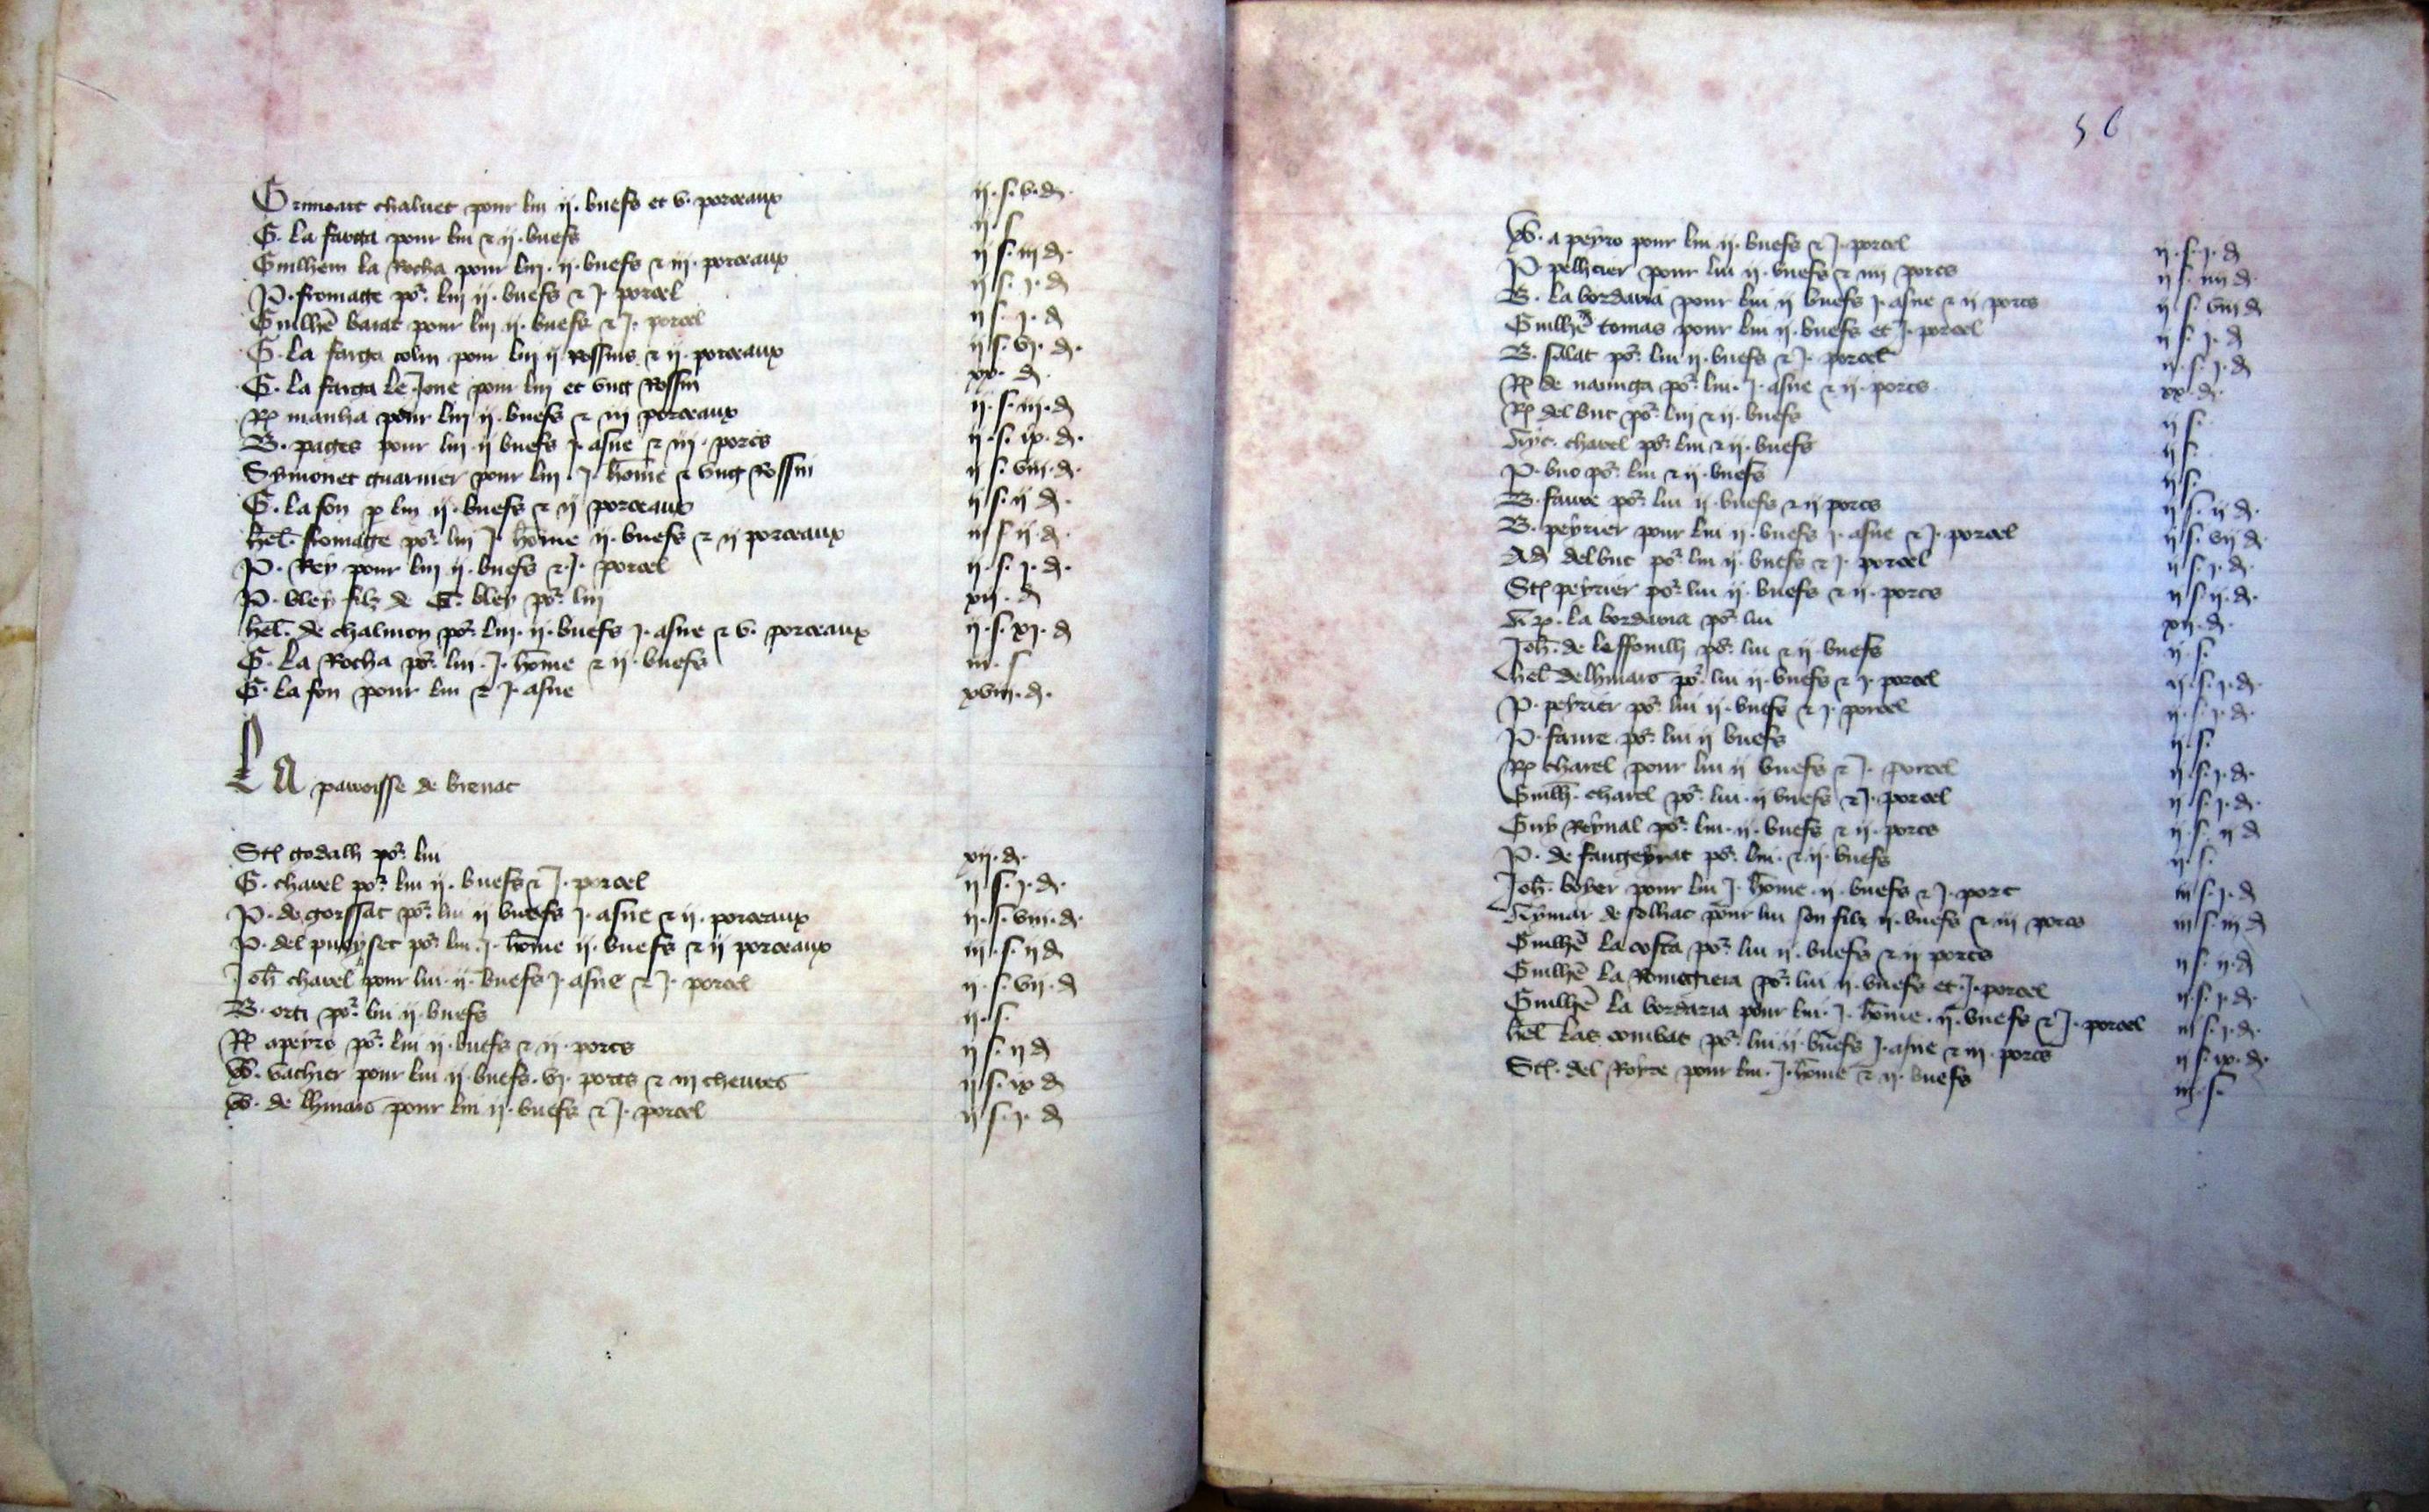 Grimoart chaluet pour lui ii. buefs et v. porceaux ii. s. v. d.
G. la farga pour lui & ii. buefs ii s
Guilhem la Rocha pour lui. ii. buefs & iii. porceaux ii s. iii d.
P. fromatge por. lui ii. buefs & j. porcel ii s. j. d
Guilhē barat pour lui ii. buefs & j. porcel ii s. j. d
G. la farga colin pour lui ii Rossins & ii. porceaux ii s. vj. d.
G. la farga le Jone pour lui et ung Rossin xv. d.
R. manha pour lui ii. buefs & iii porceaux ii. s. iii. d
B. pages pour lui ii buefs j. asne & iii. porcs ii. s. ix. d.
Symonet guarnier pour lui. j. home & ung Rossin ii s. viii. d.
G. la fon p lui ii. buefs & ii porceaux ii s. ii d.
hel. fromatge por. lui j. home ii. buefs & ii porceaux iii s. ii. d.
P. Rey pour lui ii. buefs & j. porcel ii. s. j. d.
P. bley filz de G. bley por. lui xii. d
hel. de chalmon por. lui. ii. buefs j. asne & v. porceaux ii. s. xj. d
G. la Rocha por. lui. j. home & ii. buefs iii. s
G. la fon pour lui & j. asne xviii. d.
La parroisse de brenac
Ste godalh por. lui xii. d.
G. charel por. lui ii. buefs & j. porcel ii s. j. d.
P. de gorssat por. lui ii buefs j. asne & ii. porceaux ii. s. viii. d.
P. del pueyset por. lui. j. home ii. buefs & ii porceaux iii. s. ii d
Joh charel pour lui. ii. buefs j. asne & j. porcel ii. s. vii. d
B. orti por. lui ii. buefs ii. s.
R apeyro por. lui ii. buefs & ii. porcs ii s. ii d
W. vachier pour lui ii. buefs. vj. porcs & iii chevres ii s. ix d
W. de lhmars pour lui ii. buefs & j. porcel ii s. j. d
56
W. apeyro pour lui ii. buefs & j. porcel ii. s. j. d
P. pellicier pour lui ii. buefs & iiii porcs ii s. iiii d.
B. la bordaria pour lui ii buefs j. asne & ii porcs ii s. viii d
Guilhē tomas pour lui ii. buefs et j. porcel ii s. j. d
B. salat por. lui ii. buefs & j. porcel ii. s. j. d
R de naunga por. lui. j. asne & ii. porcs xx. d.
R del buc por. lui & ii. buefs ii s.
Ayc. charel por. lui & ii. buefs ii s.
P. buo por. lui & ii. buefs ii s.
B. faure por. lui ii. buefs & ii porcs ii s. ii d.
B. peyrier pour lui ii. buefs j. asne & j. porcel ii s. vii d.
Ad delbuc por. lui ii. buefs & j. porcel ii s. j. d.
Ste peyrier por. lui ii. buefs & ii. porcs ii s. ii. d.
la bordaria por. lui xii. d.
Joh. de leffonilh por. lui & ii. buefs ii. s.
hel delhmars por. lui ii. buefs & j. porcel ii. s. j. d.
P. peyrier por. lui ii. buefs & j. porcel ii. s. j. d.
P. faure por. lui ii buefs ii. s.
R charel pour lui ii buefs & j. porcel ii. s. j. d.
Guilh. charel por. lui. ii buefs & j. porcel ii s. j. d.
Guy Reynal por. lui. ii. buefs & ii. porcs ii. s. ii d
P. de faugeyrat por. lui. & ii. buefs ii s.
Joh. boyer pour lui j. home. ii. buefs & j. porc iii s. j. d
Aymar de solhac pour lui son filz ii. buefs & iii porcs iii s. iii d
Guilhē la costa por. lui ii. buefs & ii porcs ii s. ii. d
Guilhē la Romegieia por. lui ii. buefs et. j. porcel ii. s. j. d.
Guilhē la bordaria pour lui. j. home. ii. buefs & j. porcel iii s. j. d.
hel las combas por. lui ii. buefs j. asne & iii. porcs ii s. ix. d.
Ste. del Royre pour lui. j. home & ii. buefs iii. s.